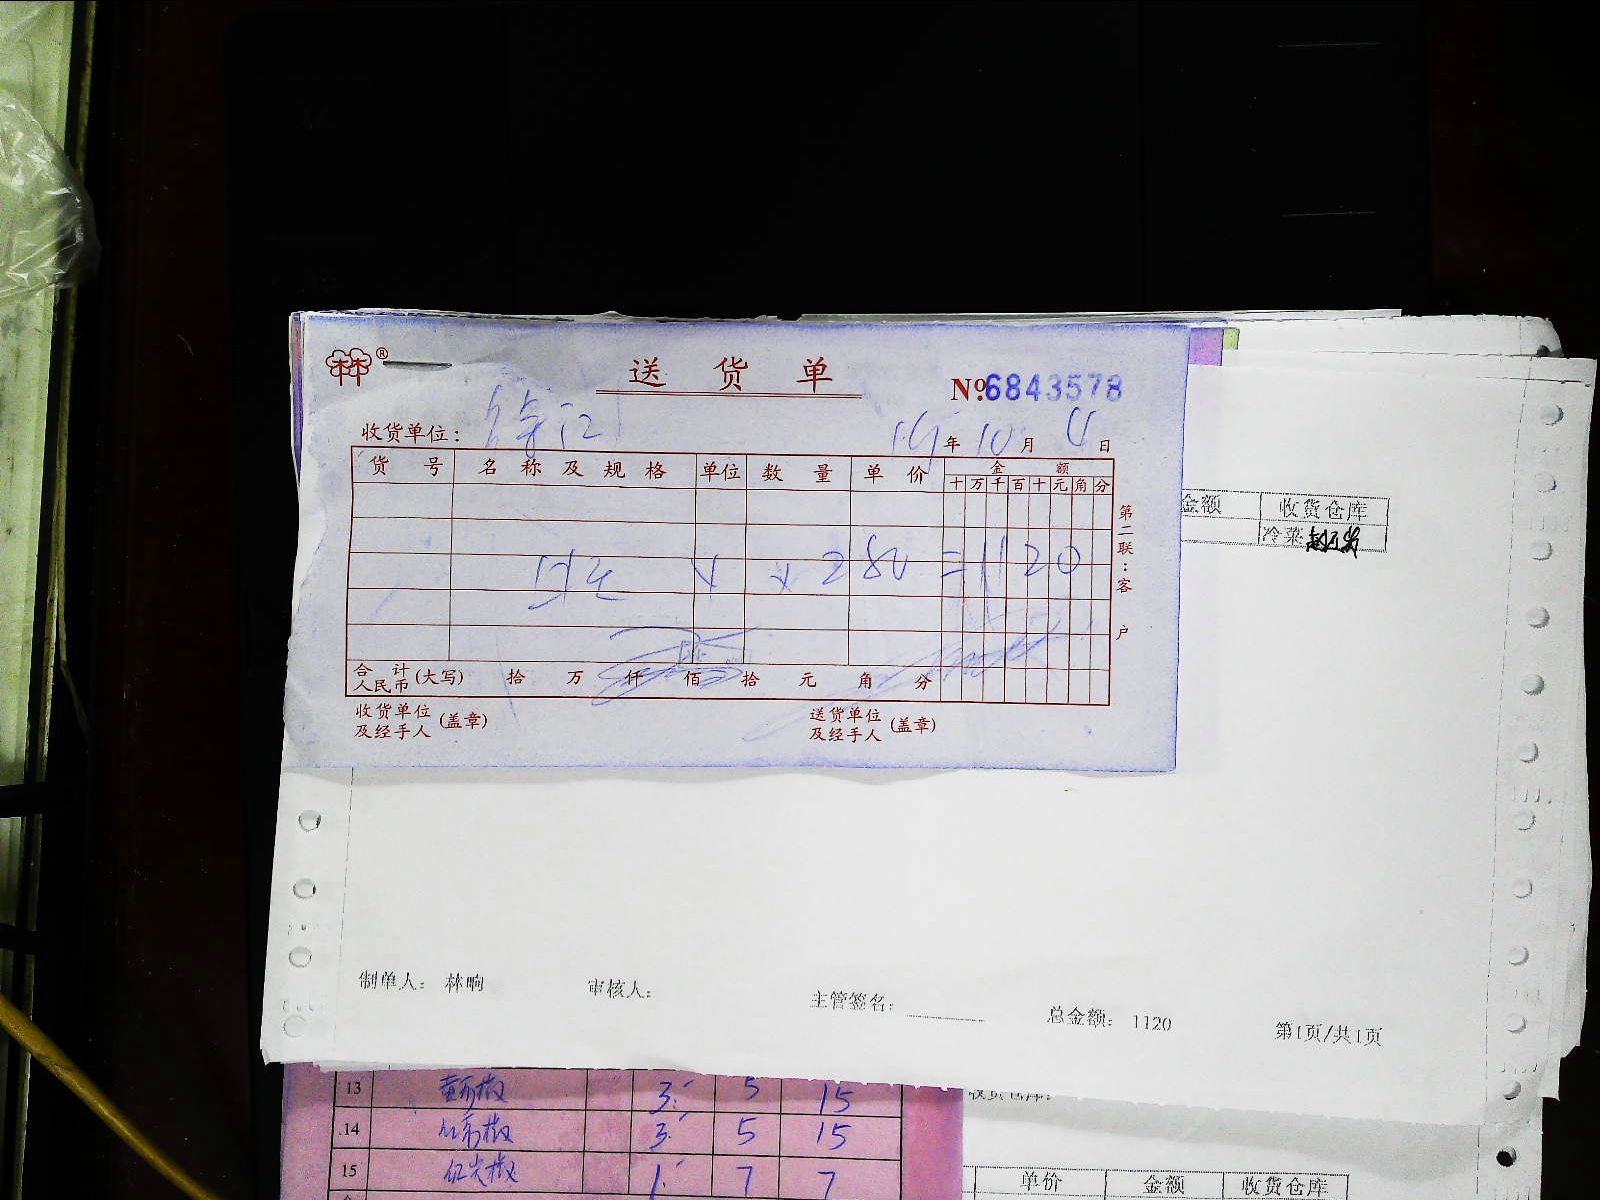 林® 送货单 №6843578
收货单位： 年 10 月 日
货号 名称及规格 单位 数量 单价 金额
十 万 千 百 十 元 角 分
280 = 1120
合计人民币(大写) 拾 万 仟 佰 拾 元 角 分
收货单位及经手人(盖章) 送货单位及经手人(盖章)
第二联：客户
金额 收货仓库
冷菜
制单人： 林响 审核人： 主管签名： 总金额： 1120 第1页/共1页
13 3 5 15
14 3 5 15
15 红尖椒 1 7 7
收货仓库：
单价 金额 收货仓库